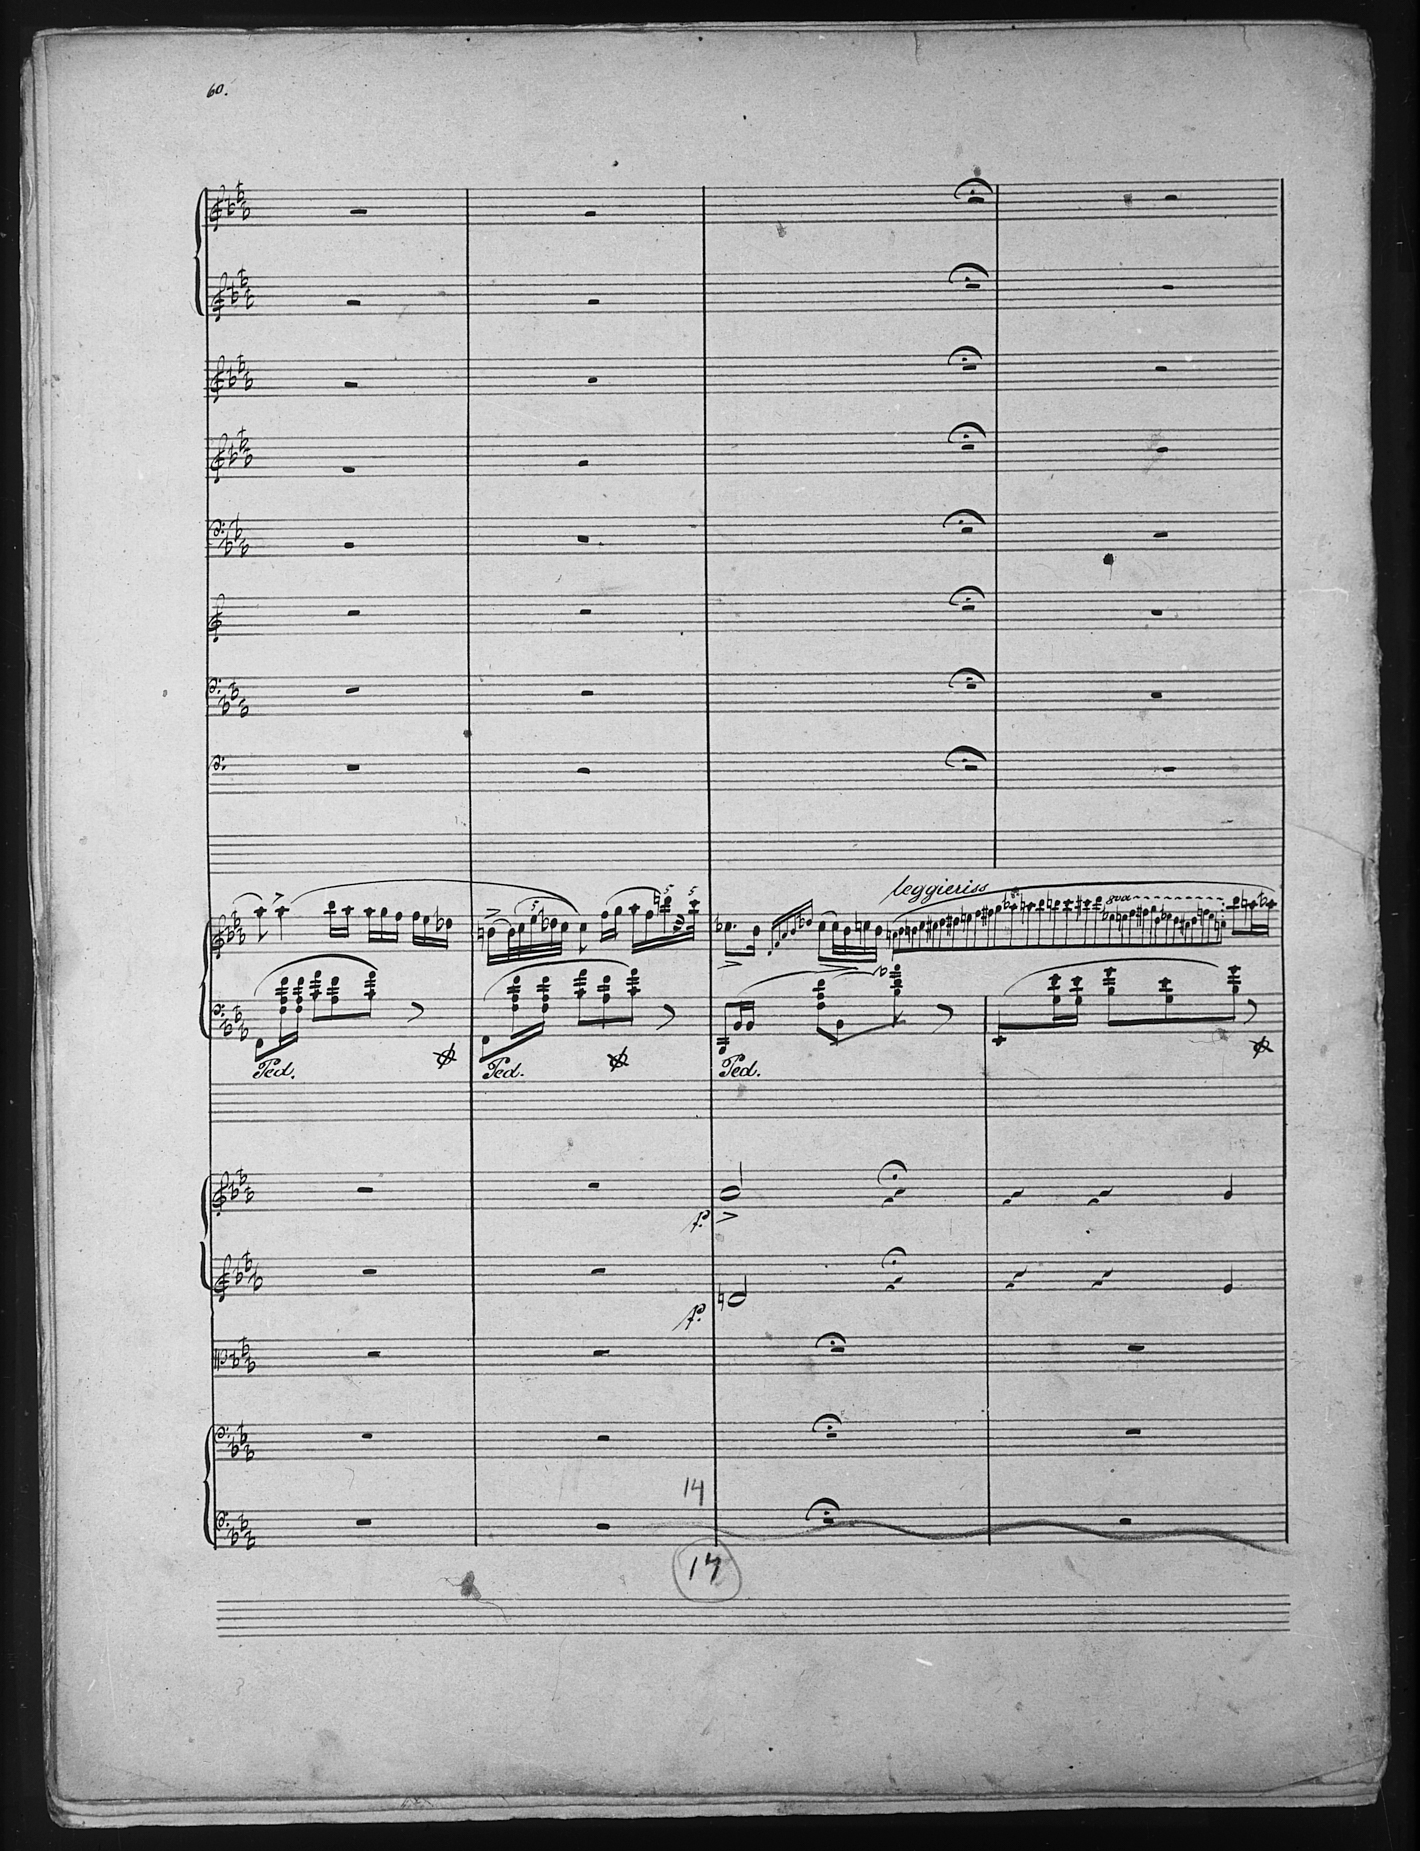 60.
5
5
5
leggieriss
8va
Ped.
Ped.
Ped.
p.
p.
14
14